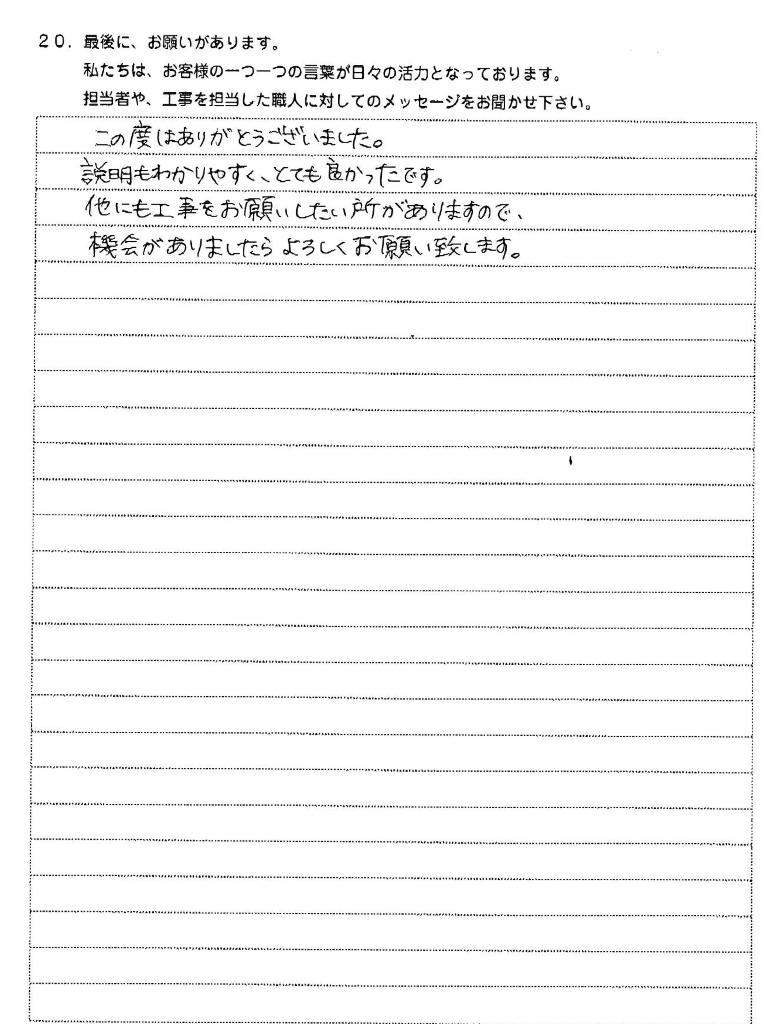 20. 最後に、お願いがあります。
私たちは、お客様の一つ一つの言葉が日々の活力となっております。
担当者や、工事を担当した職人に対してのメッセージをお聞かせ下さい。
この度はありがとうございました。
説明もわかりやすく、とても良かったです。
他にも工事をお願いしたい所がありますので、
機会がありましたらよろしくお願い致します。